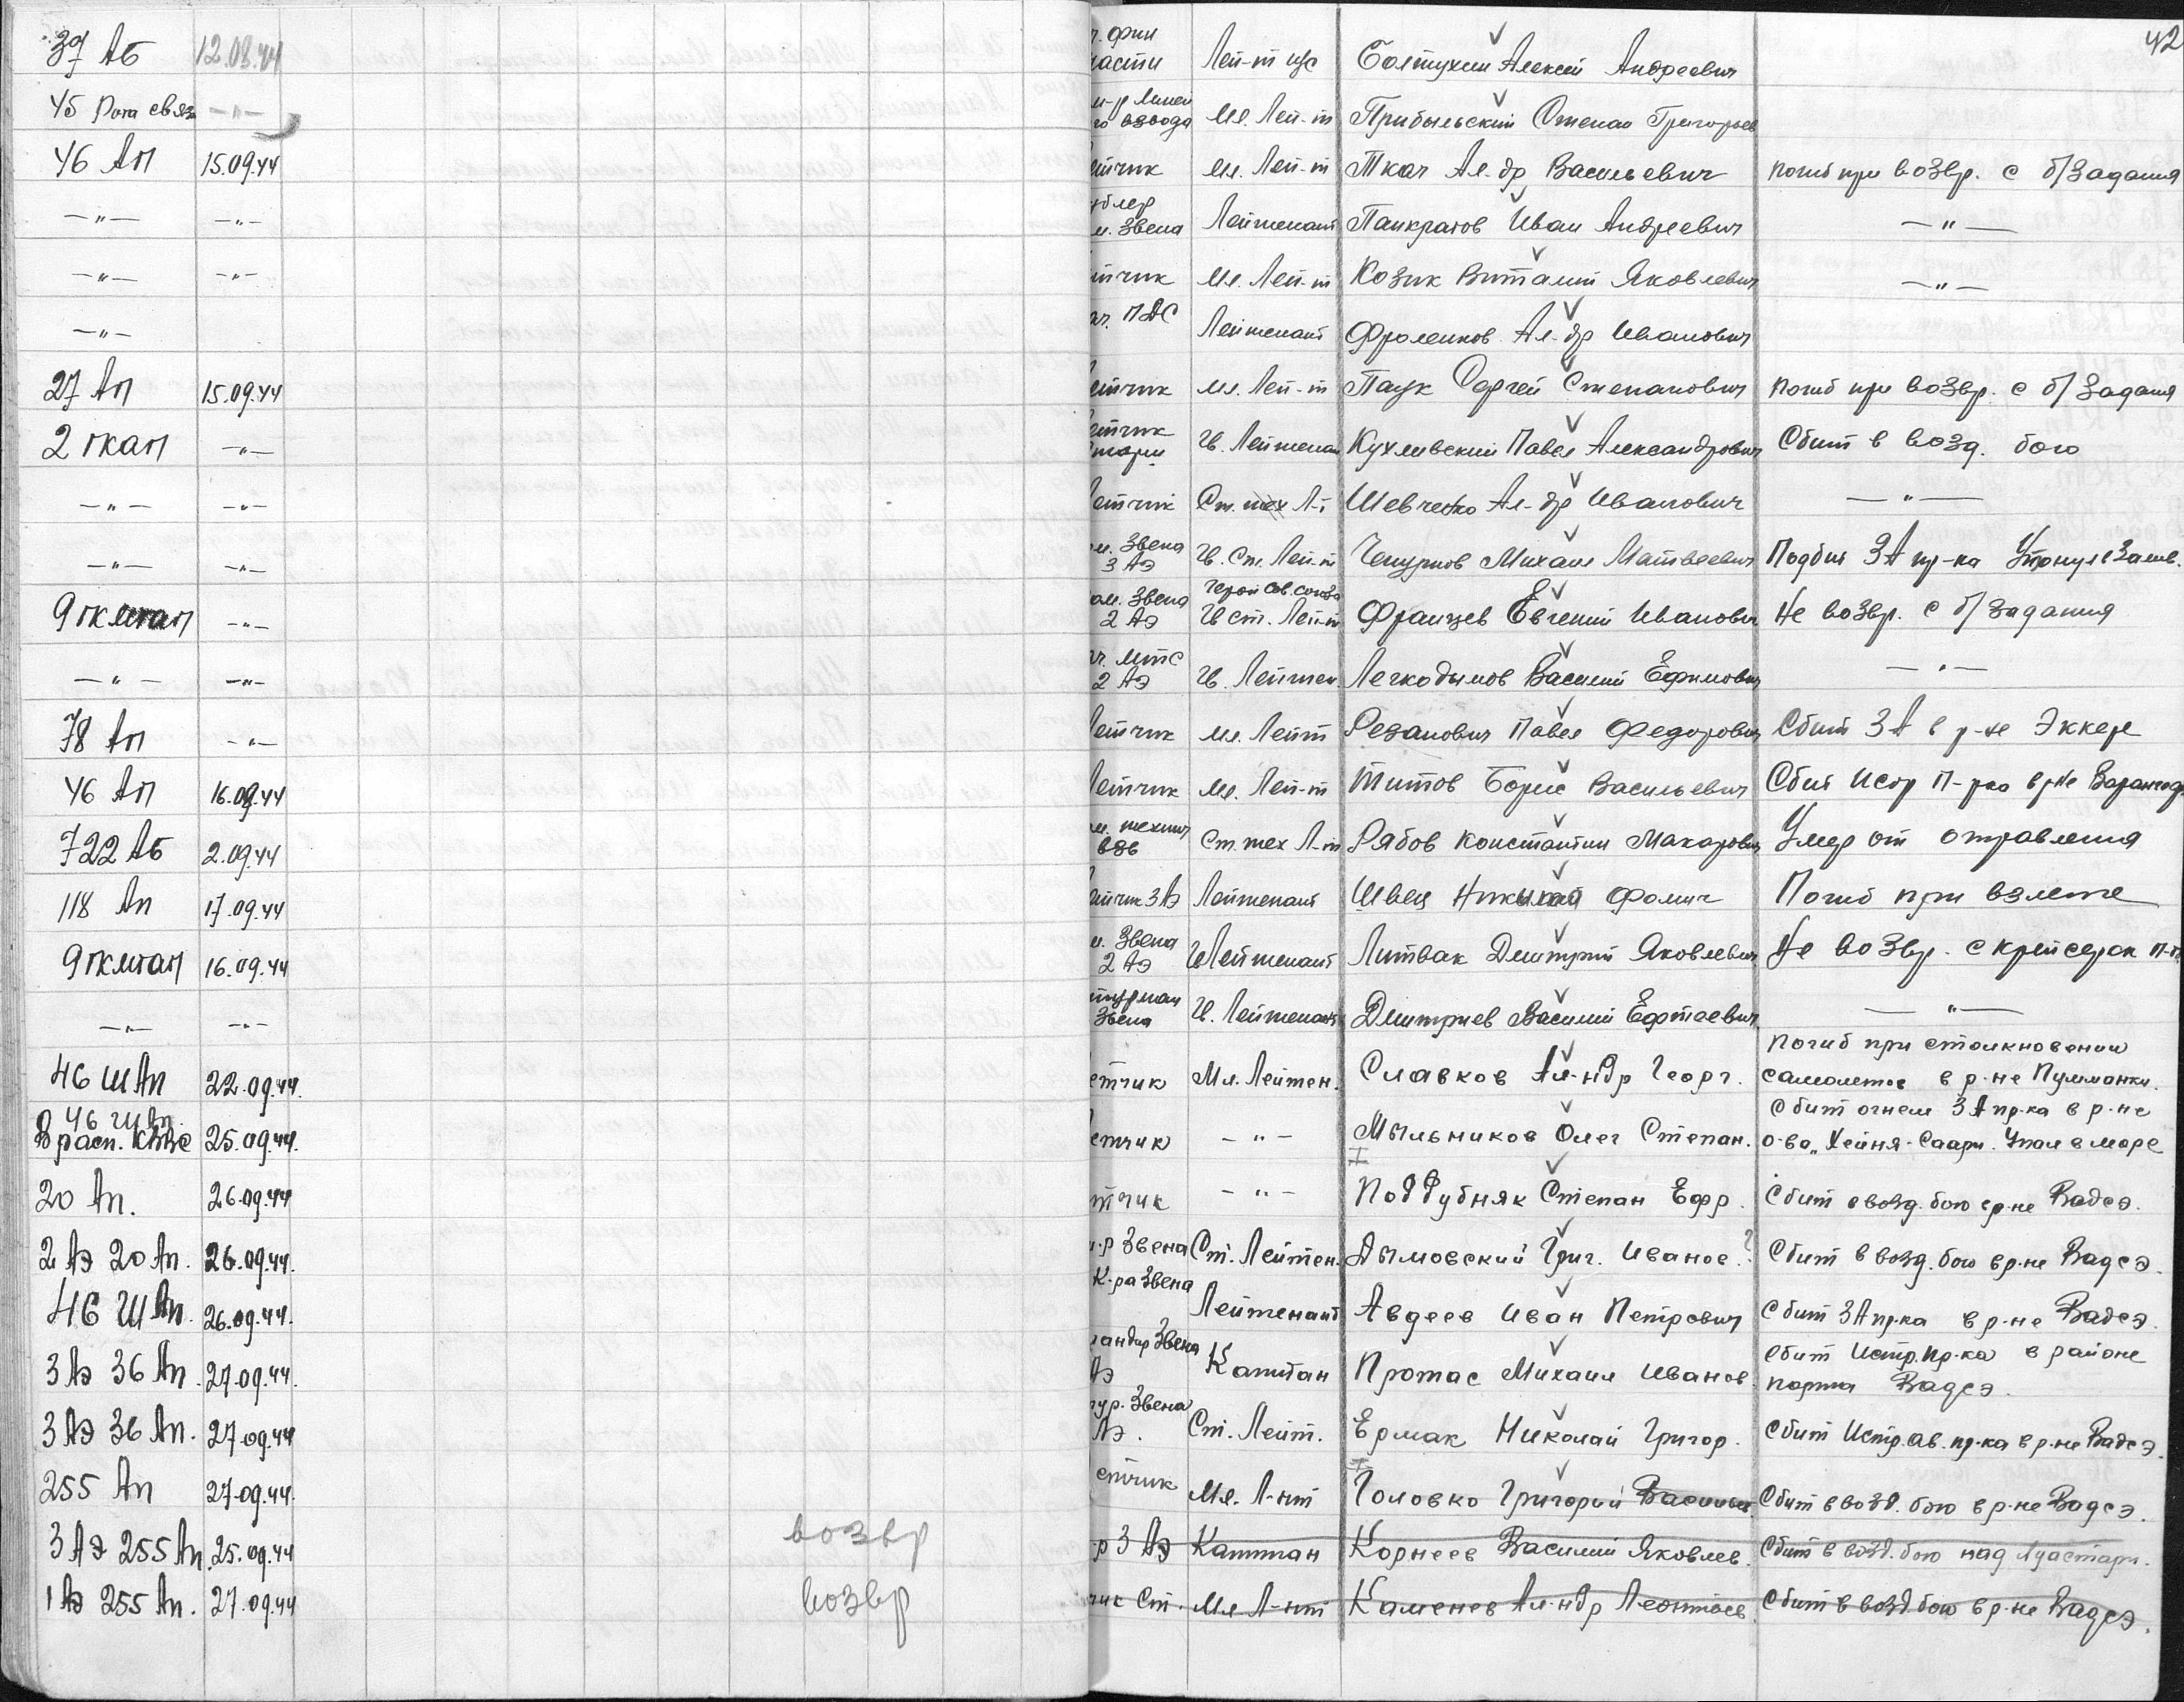 42
37 АБ 12.08.44
ч. фин
части Лей-т и/с Болтухин Алексей Андреевич
45 Рота связи —"—
взвода Мл. Лей-т Прибыльский Степан Григорьев
46 АП 15.09.44 Мл. Лей-т Ткач Ал-др Васильевич Погиб при возвр. с б/задания
—"— —"— Звена Лейтенант Панкратов Иван Андреевич —"—
—"— —"— Мл. Лей-т Козик Виталий Яковлевич —"—
—"— ПДС Лейтенант Фроленков Ал-др Иванович
27 АП 15.09.44 Мл. Лей-т Паук Сергей Степанович Погиб при возвр. с б/задания
2 гкап —"— Гв. Лейтенан Кухливский Павел Александрович Сбит в возд. бою
—"— —"— Летчик Ст. тех Л-т Шевченко Ал-др Иванович —"—
—"— —"— Звена
3 АЭ Гв. Ст. Лей-т Чепурнов Михаил Матвеевич Подбит ЗА пр-ка
9 гкмтап —"— Звена
2 АЭ Герой Сов. союза
Гв ст. Лей-т Францев Евгений Иванович Не возвр. с б/задания
—"— —"— МТС
2 АЭ Гв. Лейтен. Легкодымов Василий Ефимович —"—
78 АП —"— Летчик мл. Лейт Резанович Павел Федорович Сбит ЗА в р-не Эккере
46 АП 16.09.44 Летчик мл. Лей-т Титов Борис Васильевич Сбит
722 АБ 2.09.44 Ст. тех Л-т Рябов Константин Макарович Умер от отравления
118 АП 17.09.44 3 АЭ Лейтенант Швец Фомич Погиб при взлете
9 гкмтап 16.09.44 Звена
2 АЭ Гв Лейтенант Литвак Дмитрий Яковлевич Не возвр. с крейсерск п-та
—"— —"— Звена Гв. Лейтенант Дмитриев Василий —"—
46 ШАП 22.09.44. етчик Мл. Лейтен. Славков Ал-ндр Георг. Погиб при столкновении
самолетов в р-не Пумманки.
46 ШАП
В расп. КВВС 25.09.44. етчик —"— Мыльников Олег Степан. Сбит огнем ЗА пр-ка в р-не
о-ва „Хейня-Саари. Упал в море
20 АП. 26.09.44 тчик —"— Поддубняк Степан Ефр. Сбит в возд. бою в р-не Вадсэ.
2 АЭ 20 АП. 26.09.44. Звена Ст. Лейтен. Дымовский Григ. Иванов. ? Сбит в возд. бою в р-не Вадсэ.
46 ШАП. 26.09.44. К-ра Звена Лейтенант Авдеев Иван Петрович Сбит ЗА пр-ка в р-не Вадсэ.
3 АЭ 36 АП. 27.09.44. андир Звена
АЭ Капитан Протас Михаил Иванов. Сбит Истр. пр-ка в районе
порта Вадсэ.
3 АЭ 36 АП. 27.09.44 Звена
АЭ. Ст. Лейт. Ермак Николай Григор. Сбит Истр. ав. пр-ка в р-не Вадсэ.
255 АП 27.09.44. етчик Мл. Л-нт Головко Григорий Васильев. Сбит в возд. бою в р-не Вадсэ.
3 АЭ 255 АП. 25.09.44 возвр р 3 АЭ Капитан Корнеев Василий Яковлев. Сбит в возд. бою над Луастари.
1 АЭ 255 АП. 27.09.44 возвр чик Ст. Мл Л-нт Каменев Ал-ндр Леонтьев. Сбит в возд. бою в р-не Вадсэ.